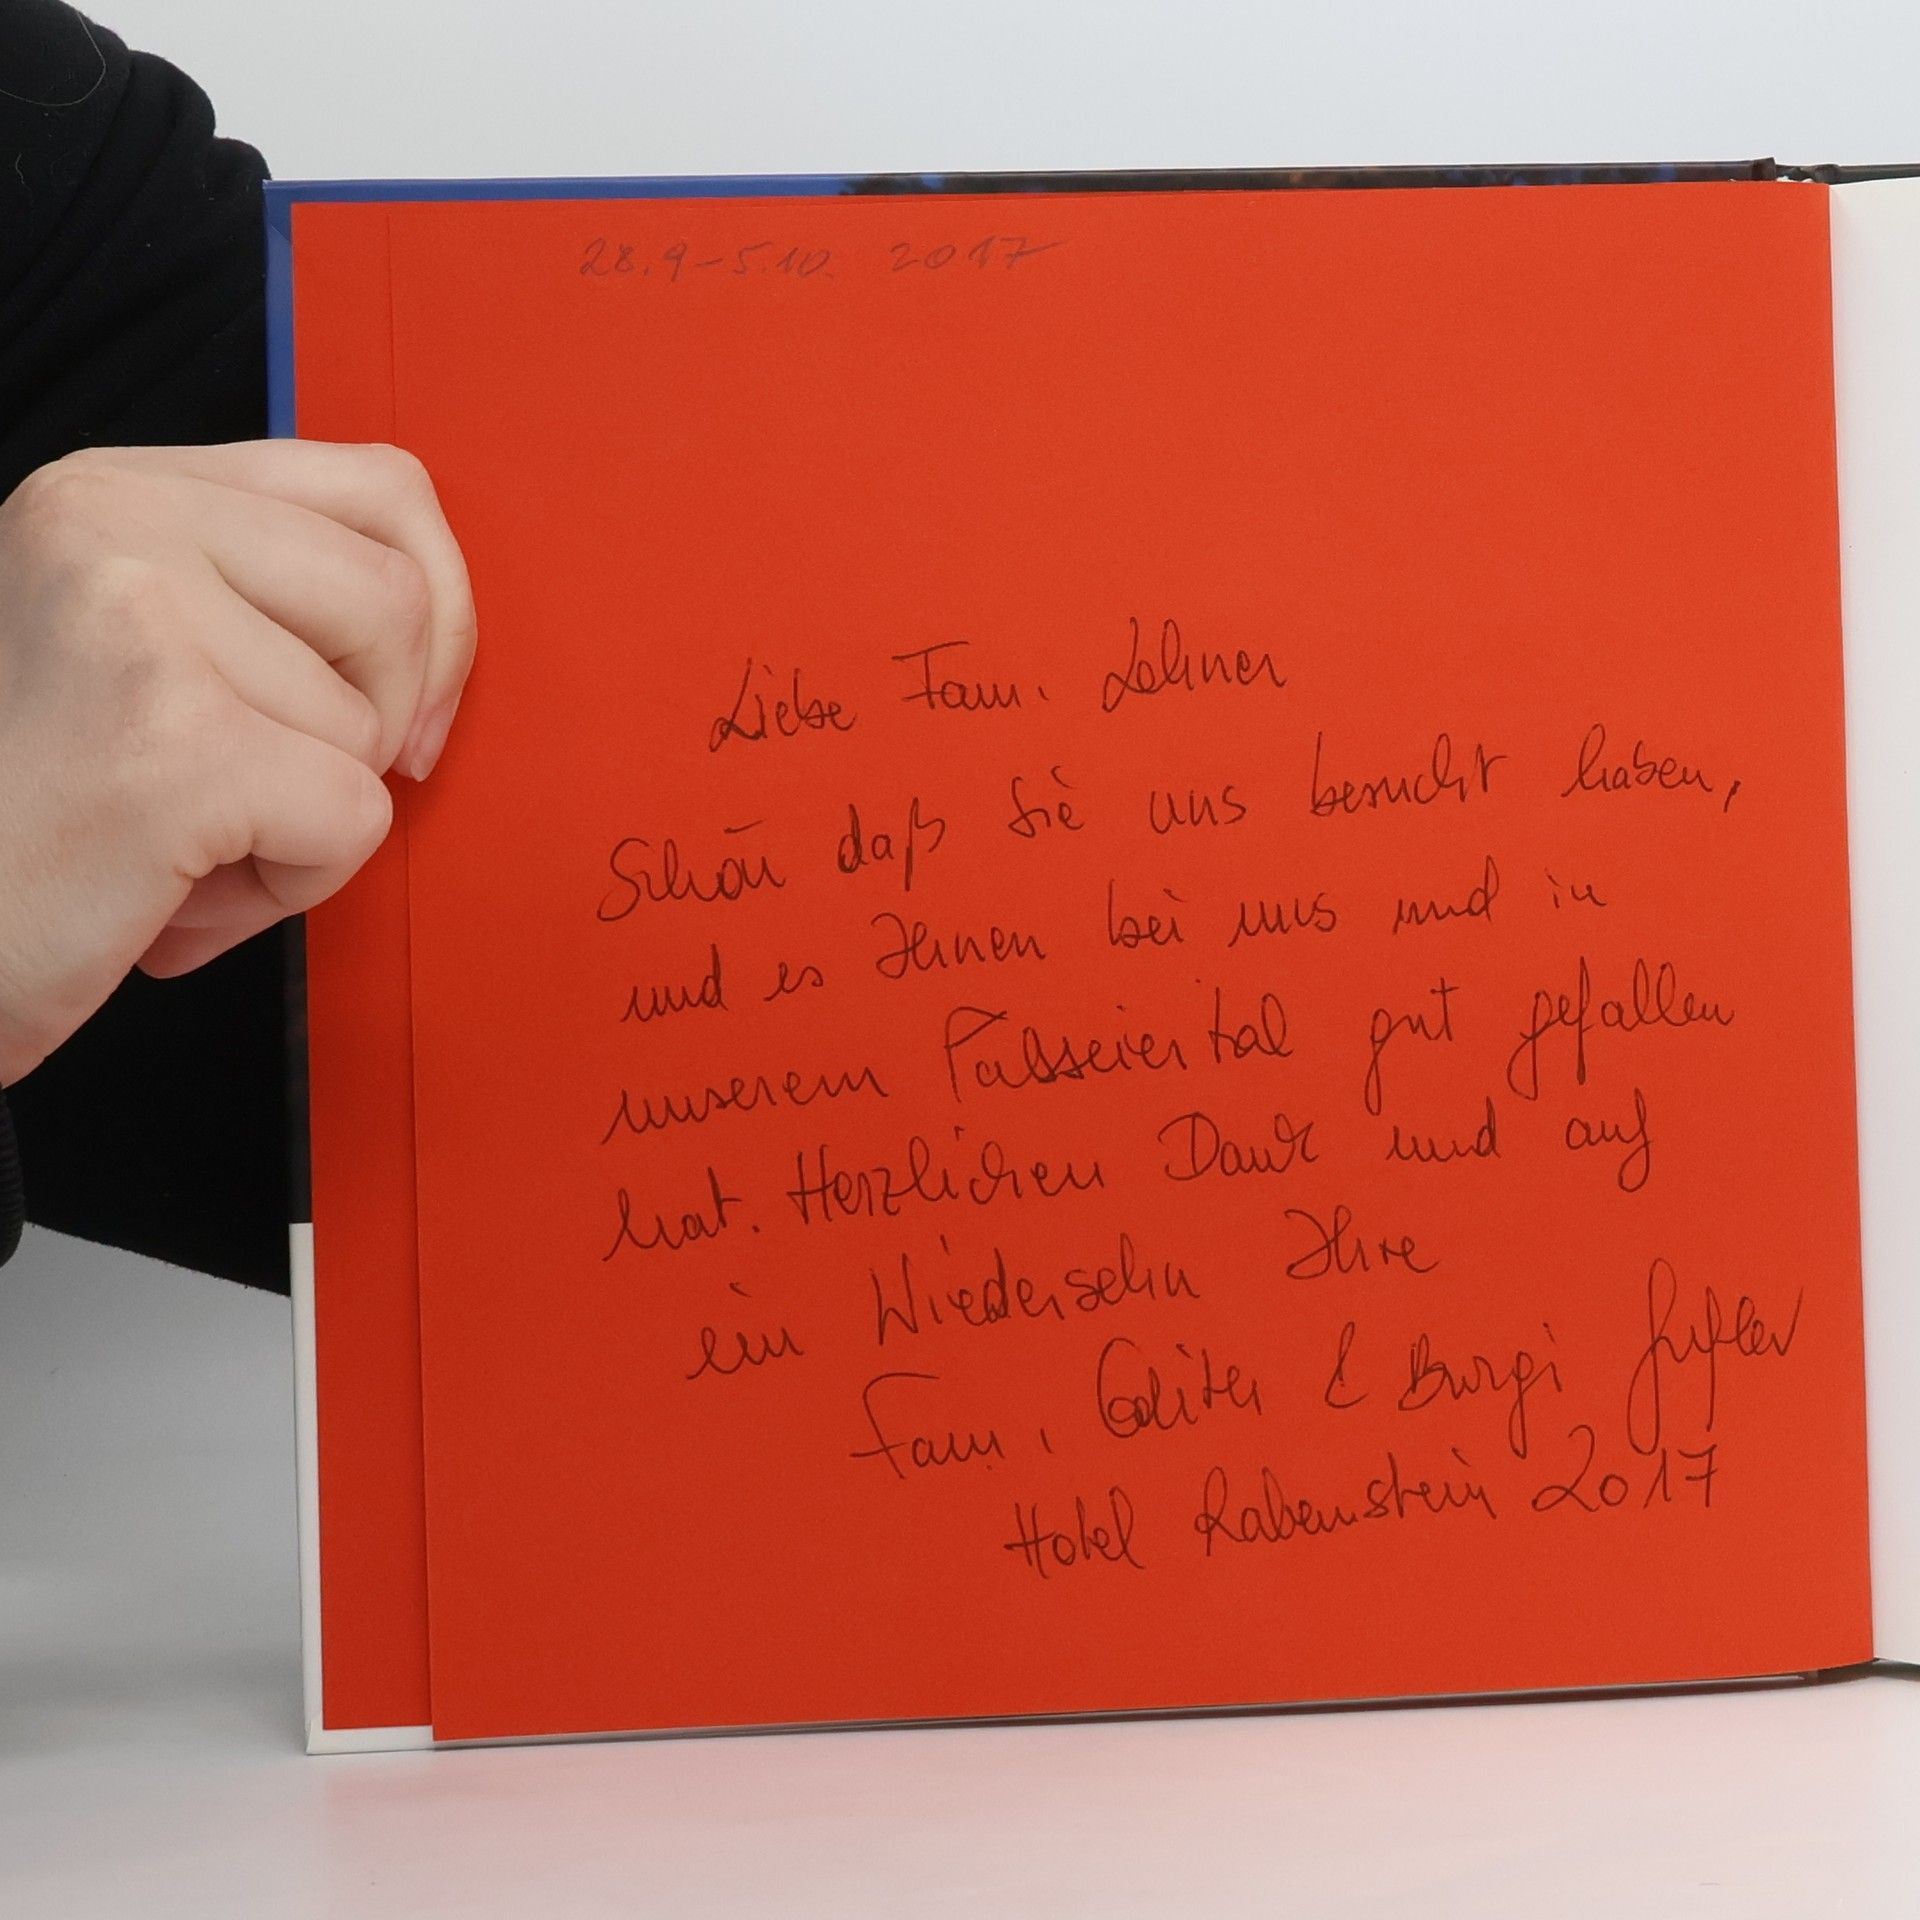 28.9-5.10. 2017
Liebe Fam. Lehner
Schön daß Sie uns besucht haben,
und es Ihnen bei uns und in
unserem Passeiertal gut gefallen
hat. Herzlichen Dank und auf
ein Wiedersehn Ihre
Fam. & Burgi Gufler
Hotel Rabenstein 2017